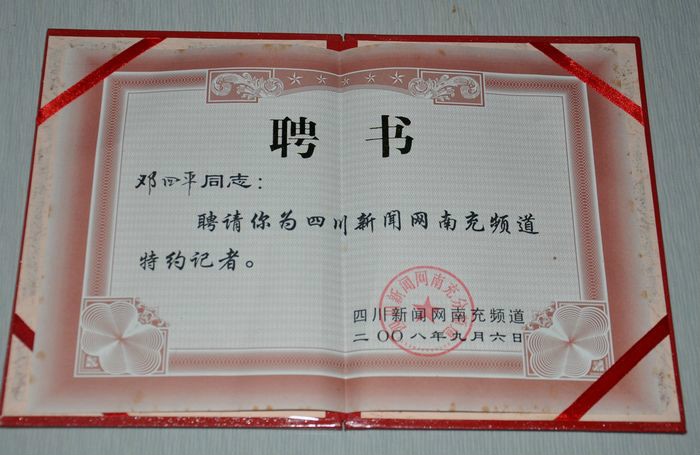 聘 书
邓四平同志：
聘请你为四川新闻网南充频道
特约记者。
四川新闻网南充频道
二〇〇八年九月六日